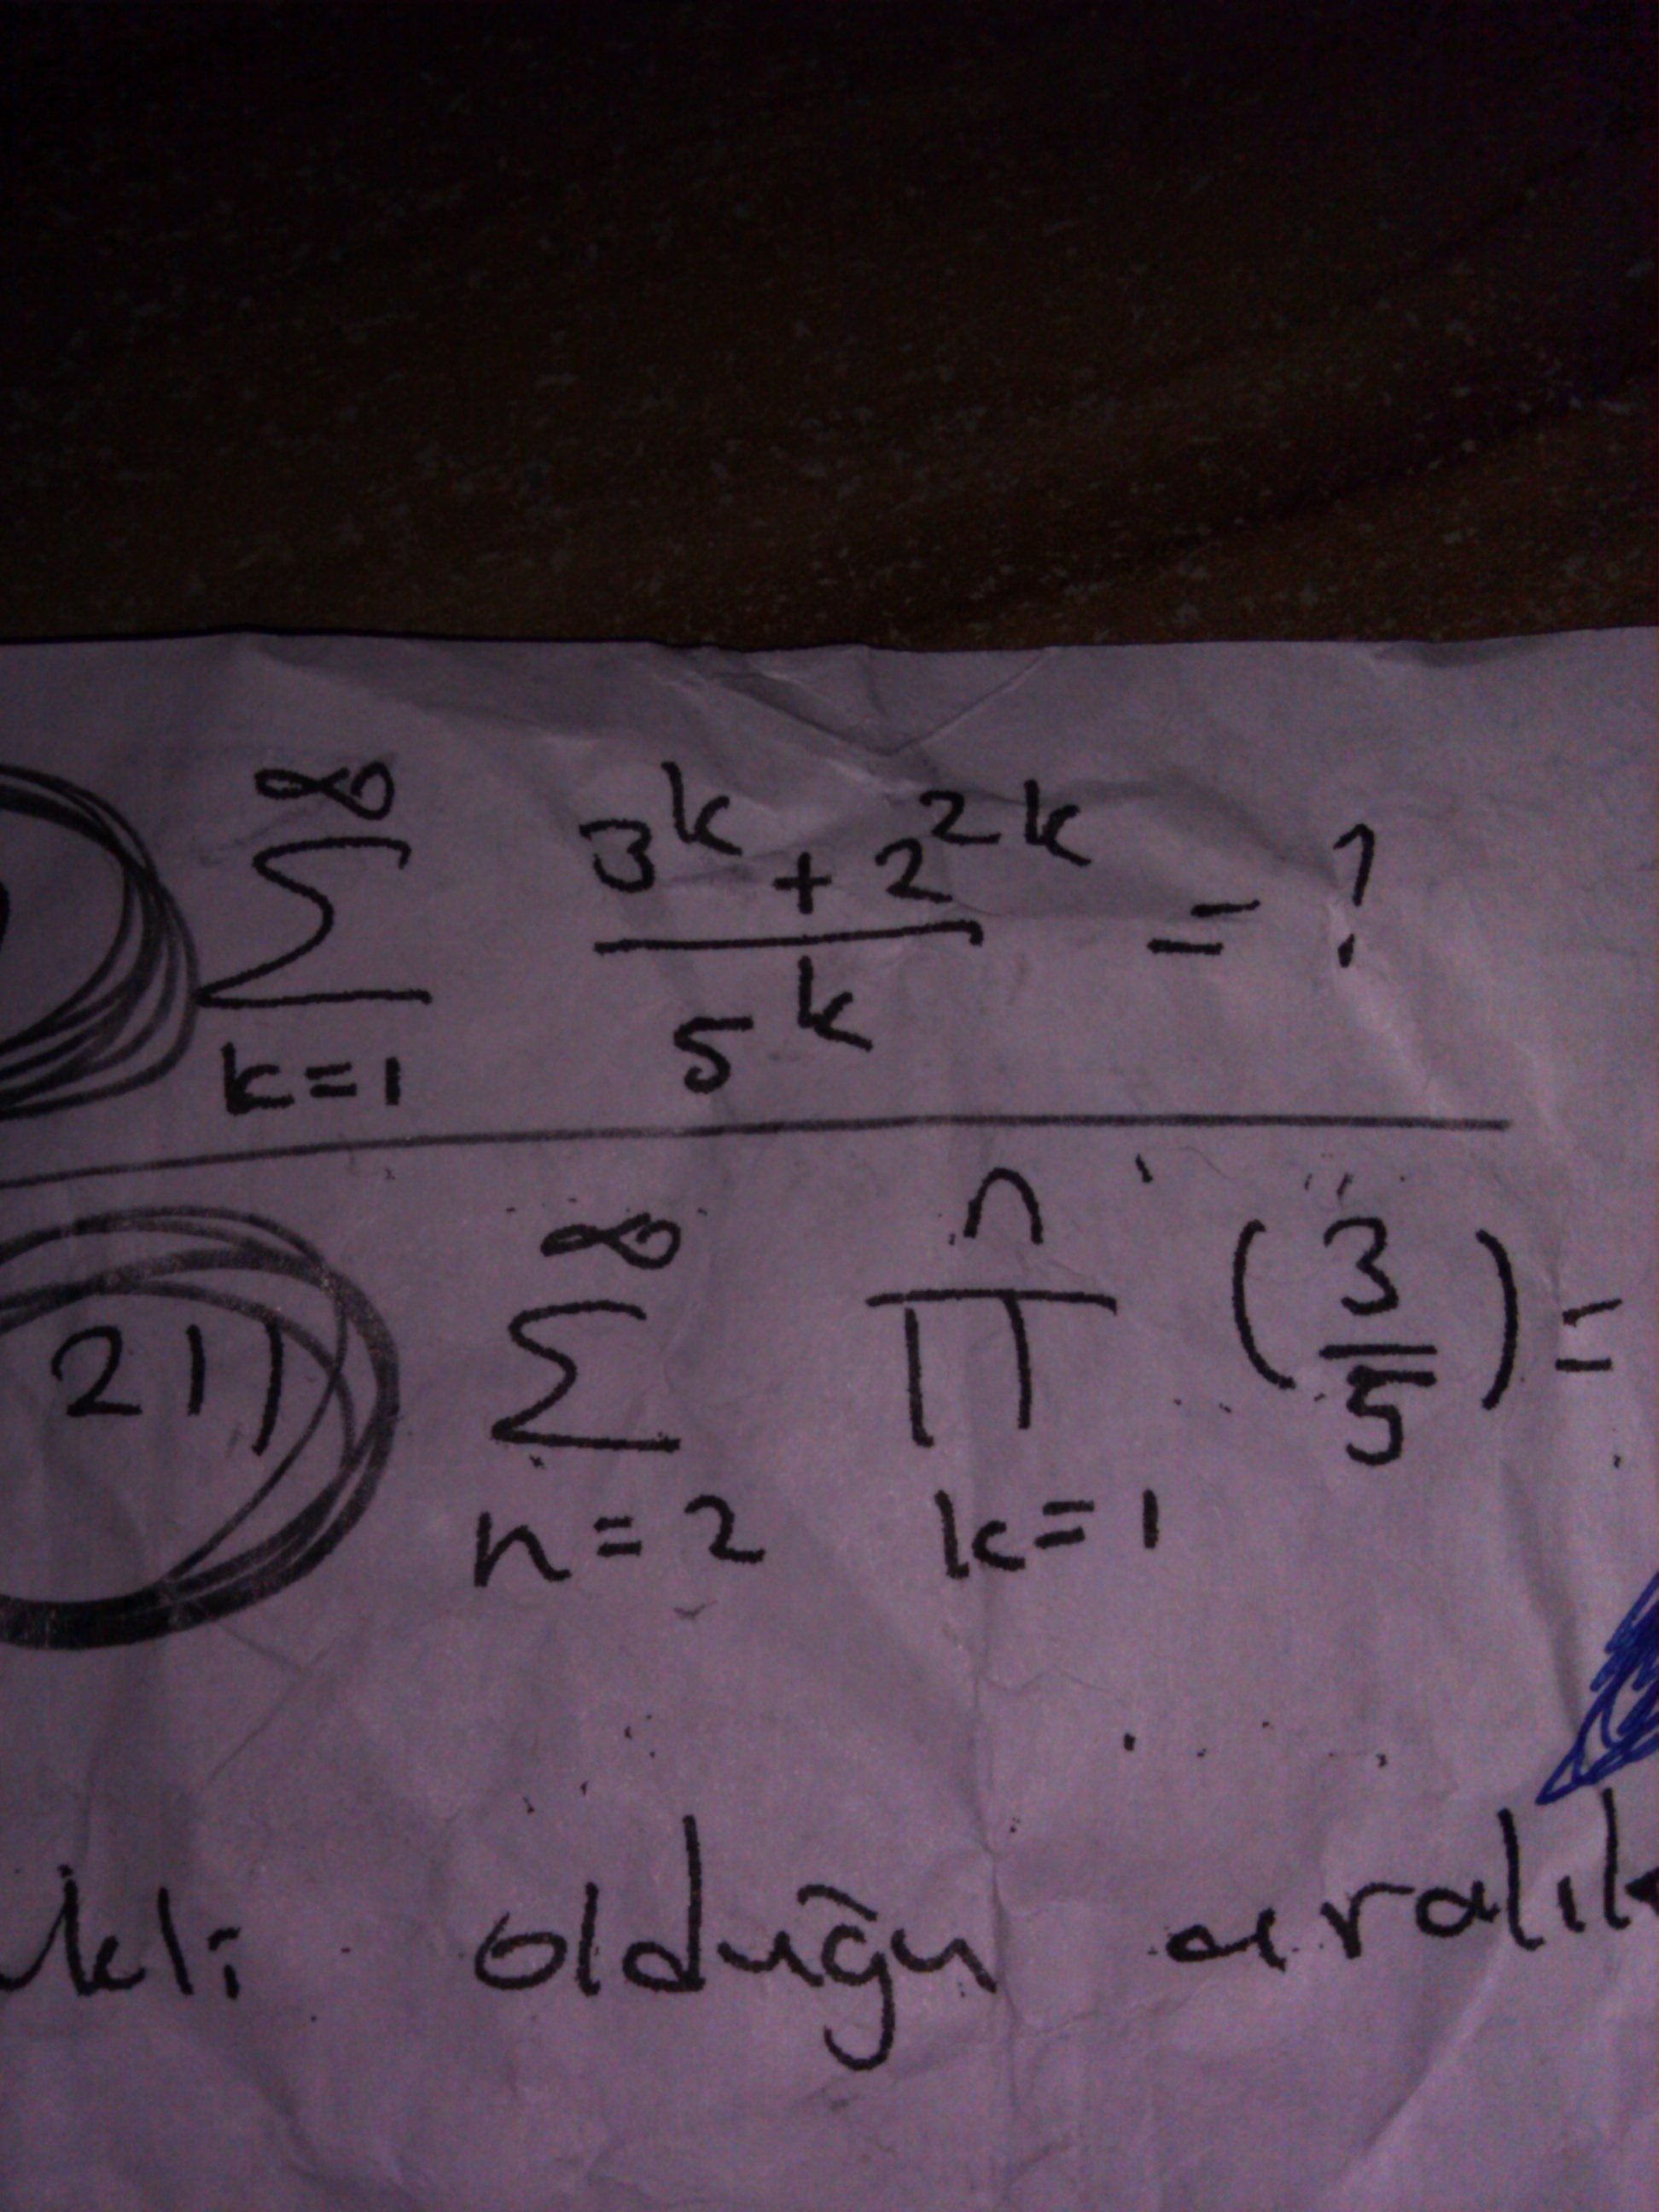 ∞ ∑ k=1 (3^k + 2^2k) / 5^k = ?
21) ∞ ∑ n=2 n ∏ k=1 (3/5) =
olduğu aralık